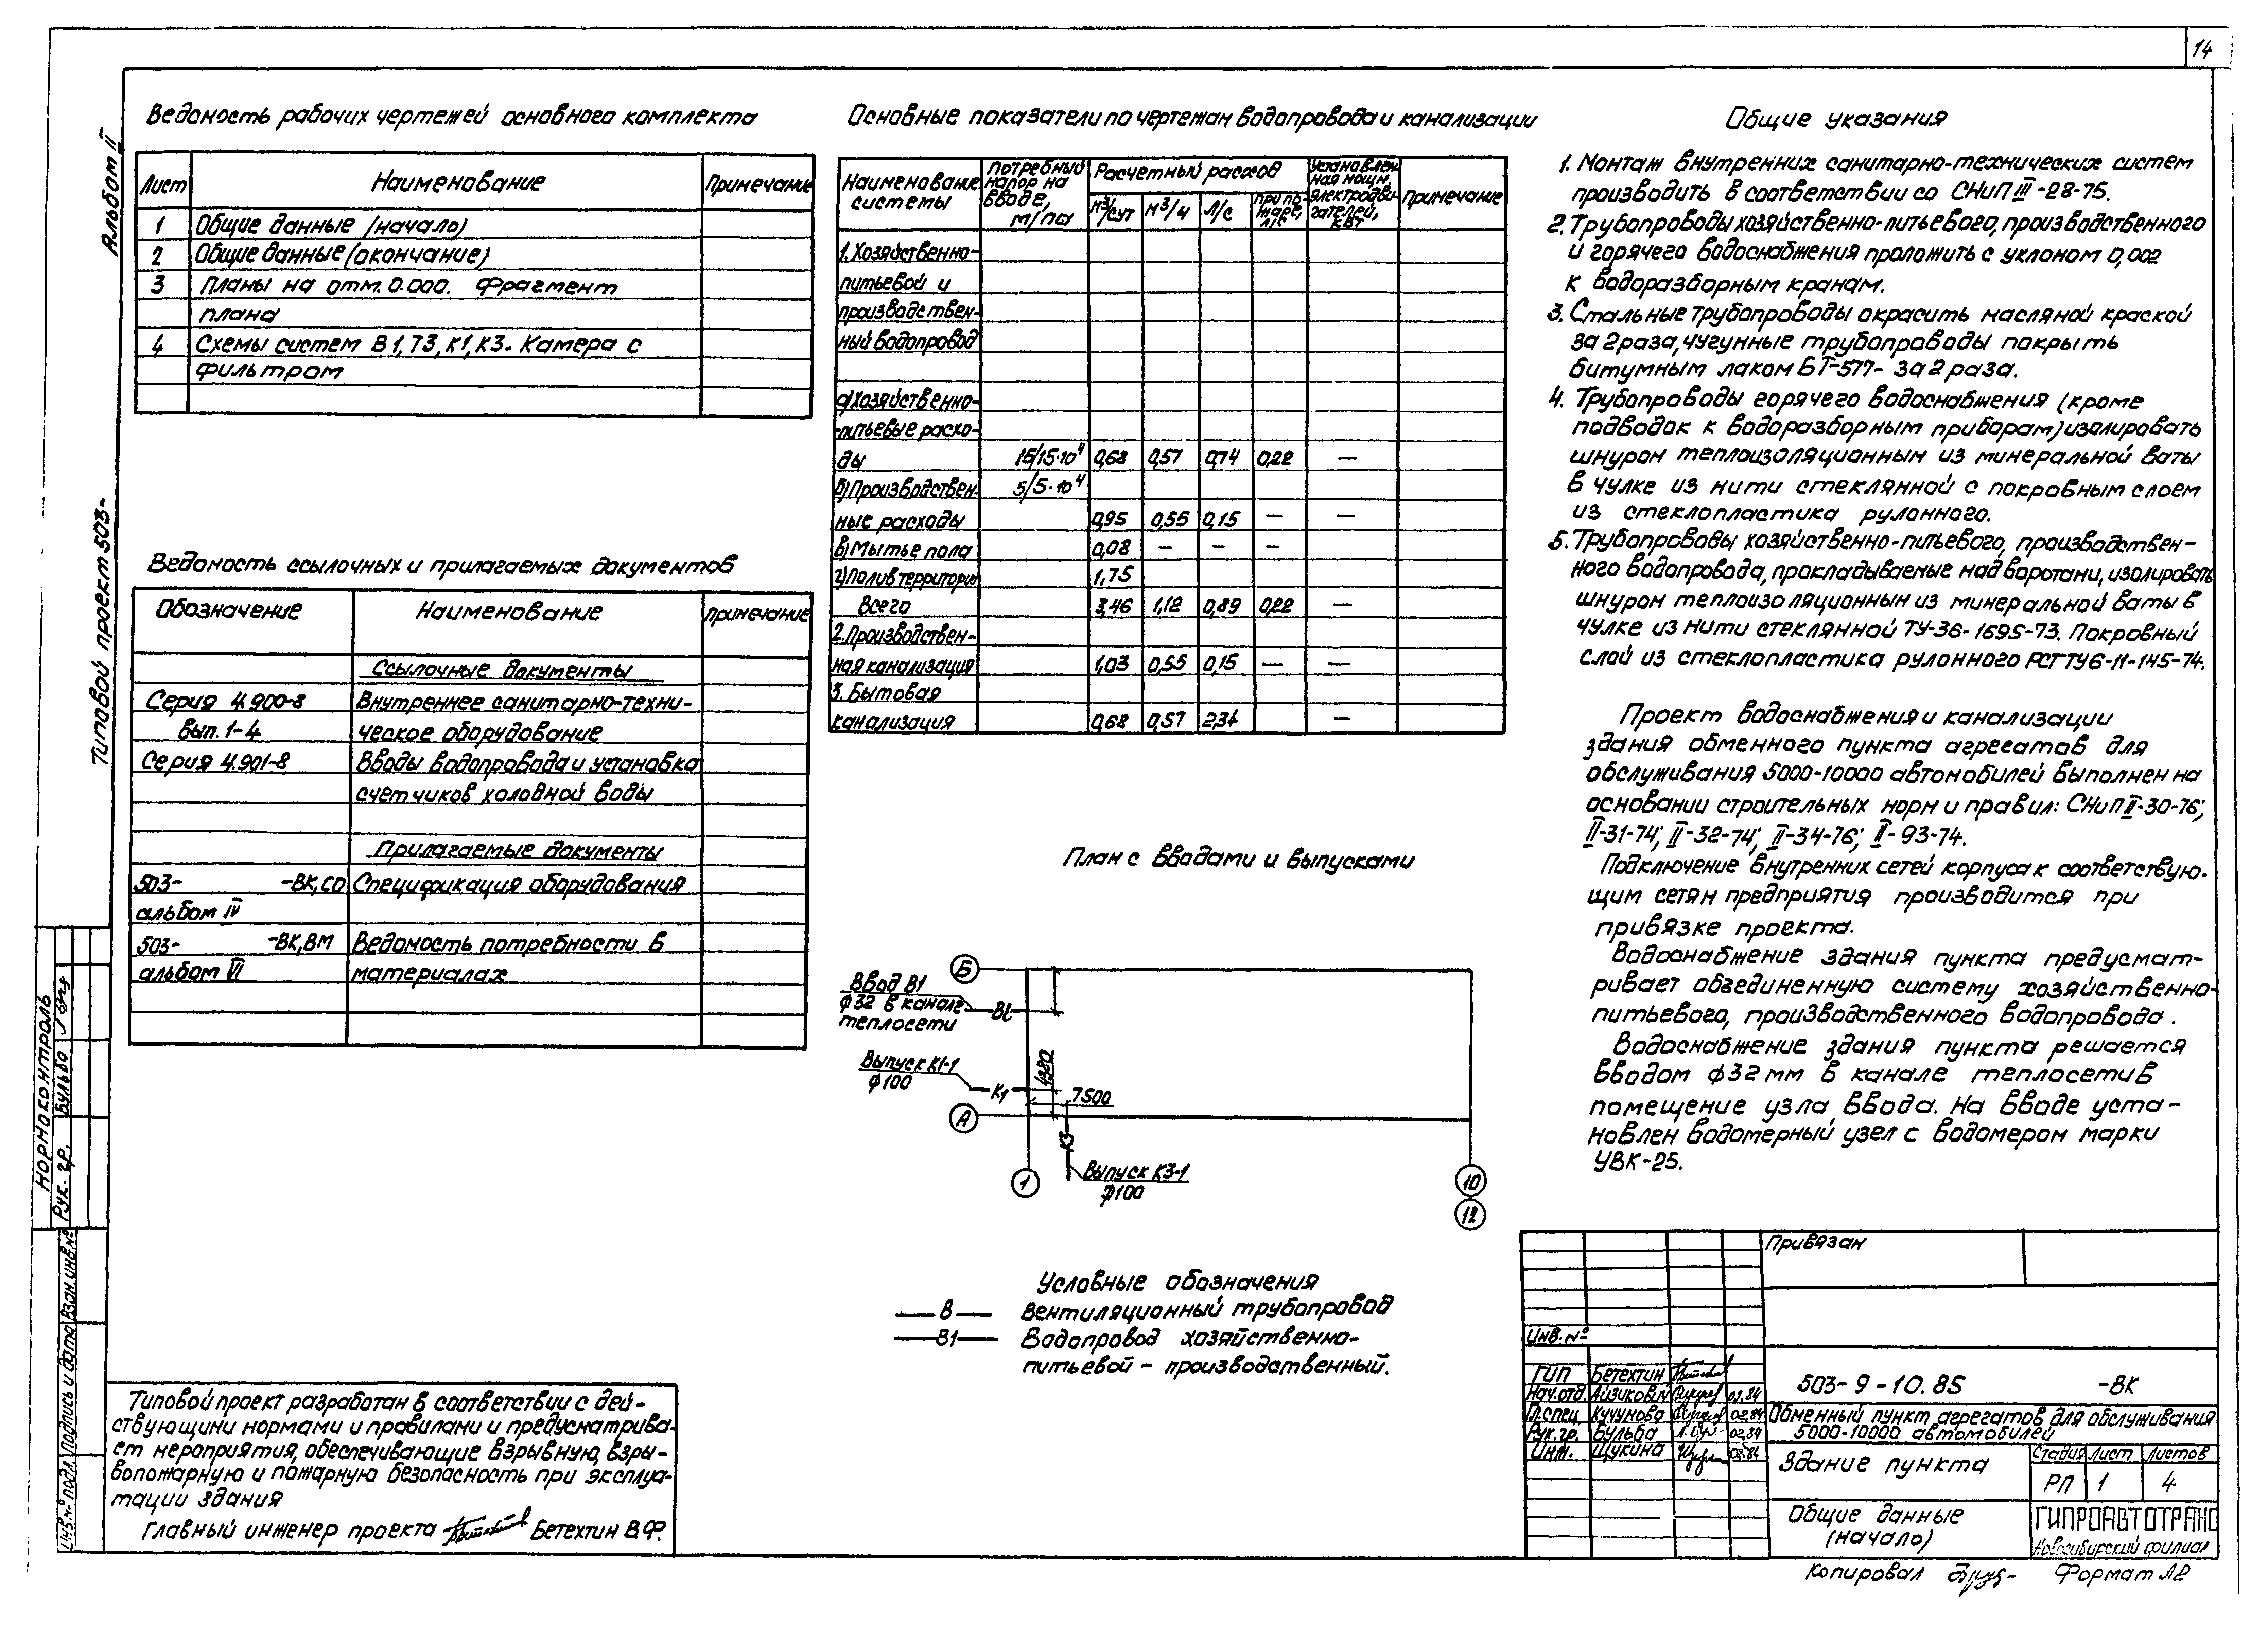 14
Альбом II
Типовой проект 503-
Ведомость рабочих чертежей основного комплекта
Лист Наименование Примечание
1 Общие данные (начало)
2 Общие данные (окончание)
3 Планы на отм. 0.000. Фрагмент
плана
4 Схемы систем В1, Т3, К1, К3. Камера с
фильтром
Ведомость ссылочных и прилагаемых документов
Обозначение Наименование Примечание
Ссылочные документы
Серия 4.900-8 Внутреннее санитарно-техни-
вып. 1-4 ческое оборудование
Серия 4.901-8 Вводы водопровода и установка
счетчиков холодной воды
Прилагаемые документы
503- -ВК,СО Спецификация оборудования
альбом IV
503- -ВК,ВМ Ведомость потребности в
альбом VI материалах
Основные показатели по чертежам водопровода и канализации
Наименование
системы
Потребный
напор на
вводе,
м/па
Расчетный расход
м³/сут м³/ч л/с
при по-
жаре,
л/с
Установлен-
ная мощн.
электродви-
гателей,
кВт
Примечание
1. Хозяйственно-
питьевой и
производствен-
ный водопровод
а) Хозяйственно-
-питьевые расхо-
ды 15/15·10⁴ 0,68 0,57 0,74 0,22 —
б) Производствен- 5/5·10⁴
ные расходы 0,95 0,55 0,15 — —
в) Мытье пола 0,08 — — —
г) Полив территории 1,75
Всего 3,46 1,12 0,89 0,22 —
2. Производствен-
ная канализация 1,03 0,55 0,15 — —
3. Бытовая
канализация 0,68 0,57 2,34 —
План с вводами и выпусками
Б
Ввод В1
ф32 в канале
теплосети
В1
Выпуск К1-1
ф100
К1
4380
7500
А
К3
Выпуск К3-1
ф100
1
10
12
Условные обозначения
—В— Вентиляционный трубопровод
—В1— Водопровод хозяйственно-
питьевой - производственный.
Общие указания
1. Монтаж внутренних санитарно-технических систем
производить в соответствии со СНиП III-28-75.
2. Трубопроводы хозяйственно-питьевого, производственного
и горячего водоснабжения проложить с уклоном 0,002
к водоразборным кранам.
3. Стальные трубопроводы окрасить масляной краской
за 2 раза, чугунные трубопроводы покрыть
битумным лаком БТ-577- за 2 раза.
4. Трубопроводы горячего водоснабжения (кроме
подводок к водоразборным приборам) изолировать
шнуром теплоизоляционным из минеральной ваты
в чулке из нити стеклянной с покровным слоем
из стеклопластика рулонного.
5. Трубопроводы хозяйственно-питьевого, производствен-
ного водопровода, прокладываемые над воротами, изолировать
шнуром теплоизоляционным из минеральной ваты в
чулке из нити стеклянной ТУ-36-1695-73. Покровный
слой из стеклопластика рулонного РСТ ТУ6-11-145-74.
Проект водоснабжения и канализации
здания обменного пункта агрегатов для
обслуживания 5000-10000 автомобилей выполнен на
основании строительных норм и правил: СНиП II-30-76;
II-31-74; II-32-74; II-34-76; II-93-74.
Подключение внутренних сетей корпуса к соответствую-
щим сетям предприятия производится при
привязке проекта.
Водоснабжение здания пункта предусмат-
ривает объединенную систему хозяйственно-
питьевого, производственного водопровода.
Водоснабжение здания пункта решается
вводом ф32мм в канале теплосети в
помещение узла ввода. На вводе уста-
новлен водомерный узел с водомером марки
УВК-25.
Нормоконтроль
Рук. гр. Бульба
Инв. № подл. Подпись и дата Взам. инв. №
Типовой проект разработан в соответствии с дей-
ствующими нормами и правилами и предусматрива-
ет мероприятия, обеспечивающие взрывную, взры-
вопожарную и пожарную безопасность при эксплуа-
тации здания
Главный инженер проекта Бетехтин В.Ф.
Привязан
Инв. №
ГИП Бетехтин
Нач. отд. Айзикович 02.84
Гл. спец. Кучумова 02.84
Рук. гр. Бульба 02.84
Инж. Щукина 02.84
503-9-10.85 -ВК
Обменный пункт агрегатов для обслуживания
5000-10000 автомобилей
Здание пункта
Стадия Лист Листов
РП 1 4
Общие данные
(начало)
ГИПРОАВТОТРАНС
Новосибирский филиал
Копировал Формат А2